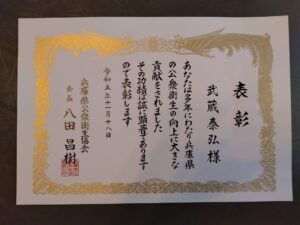 表彰
武蔵泰弘様
あなたは多年にわたり兵庫県
の公衆衛生の向上に大きな
貢献をされました
その功績は誠に顕著であります
ので表彰します
令和五年十一月十八日
兵庫県公衆衛生協会
会長 八田昌樹